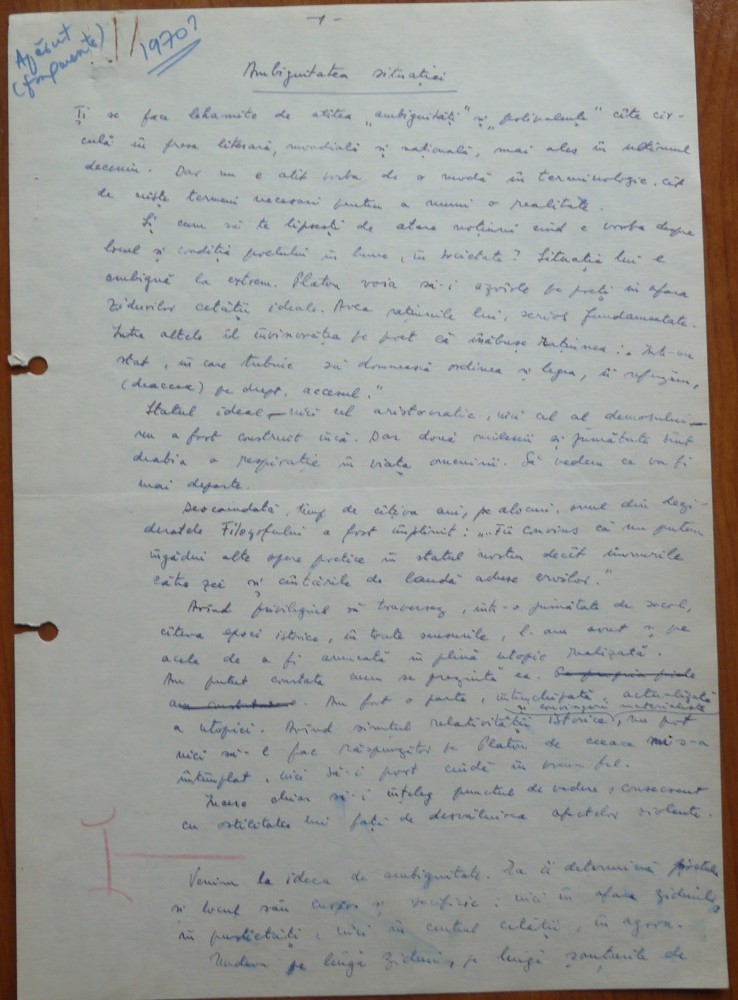 - 1 -
Apărut
(fragmente)
1970?
Ambiguitatea situației
Ți se face lehamite de atîtea „ambiguități" și „polivalențe" cîte cir-
culă în presa literară, mondială și națională, mai ales în ultimul
deceniu. Dar nu e atît vorba de o modă în terminologie, cît
de niște termeni necesari pentru a numi o realitate.
Și cum să te lipsești de atare noțiuni cînd e vorba despre
locul și condiția poetului în lume, în societate? Situația lui e
ambiguă la extrem. Platon voia să-i azvîrle pe poeți în afara
zidurilor cetății ideale. Avea rațiunile lui, serios fundamentate.
Între altele îl învinovățea pe poet că înăbușe rațiunea: „Într-un
stat, în care trebuie să domnească ordinea și legea, îi refuzăm,
(deaceea) pe drept, accesul."
Statul ideal – nici cel aristocratic, nici cel al demosului –
nu a fost construit încă. Dar două milenii și jumătate sînt
deabia o respirație în viața omenirii. Să vedem ce va fi
mai departe.
Deocamdată, timp de cîțiva ani, pe alocuri, unul din dezi-
deratele Filozofului a fost împlinit: „Fii convins că nu putem
îngădui alte opere poetice în statul nostru decît imnurile
către zei și cîntările de laudă aduse eroilor."
Avînd privilegiul să traversez, într-o jumătate de secol,
cîteva epoci istorice, în toate sensurile, l-am avut și pe
acela de a fi aruncată în plină utopie realizată.
Am putut constata cum se prezintă ea.
Am fost o parte, întruchipată, actualizată
și convingeri materialiste
a utopiei. Avînd simțul relativității istorice, nu pot
nici să-l fac răspunzător pe Platon de ceeace mi s-a
întîmplat, nici să-i port ciudă în vreun fel.
Încerc chiar să-i înțeleg punctul de vedere, consecvent
cu ostilitatea lui față de dezvăluirea afectelor violente.
Venim la ideea de ambiguitate. Ea îi determină poetului
și locul său curios și : nici în afara zidurilor,
în pustietăți, nici în centrul cetății, în agora.
Undeva pe lîngă ziduri, pe lîngă șanțurile de